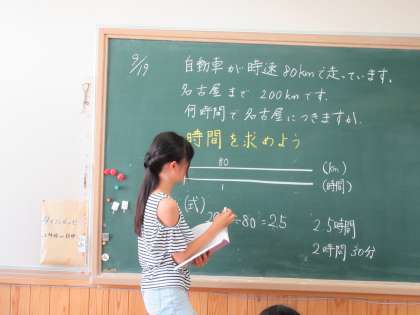 9/19
自動車が時速80kmで走っています。
名古屋まで200kmです。
何時間で名古屋につきますか。
時間を求めよう
80
(km)
1
(時間)
(式)
÷80=2.5
2.5時間
2時間30分